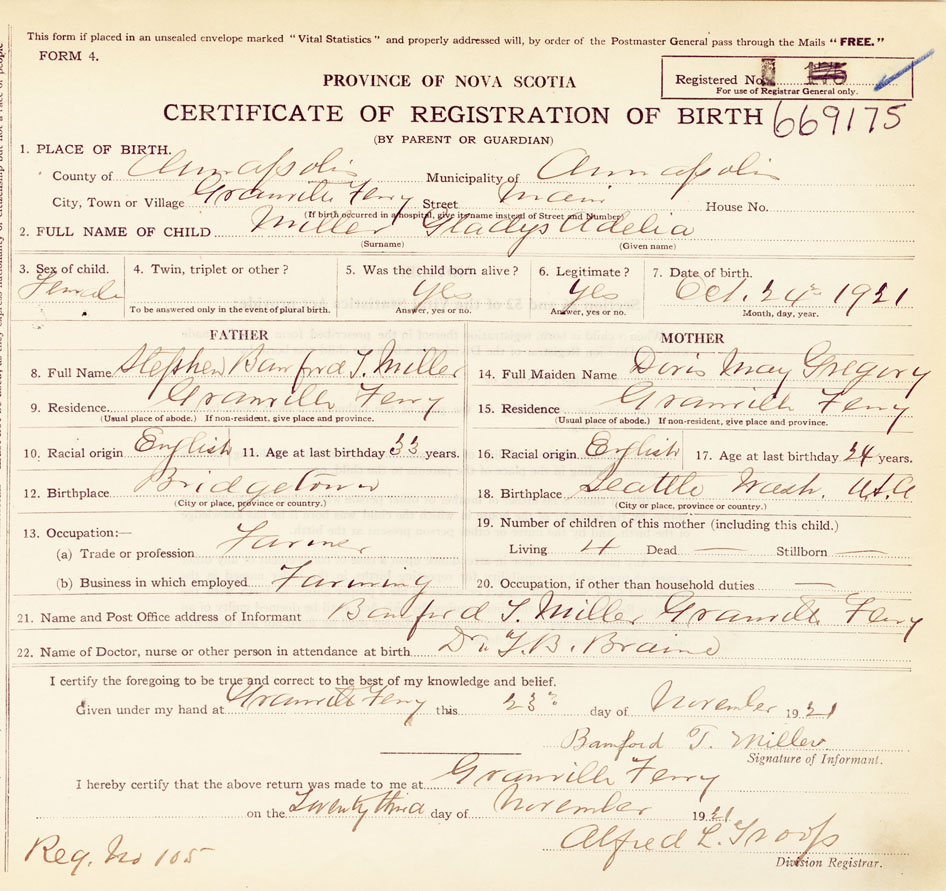 This form if placed in an unsealed envelope marked "Vital Statistics" and properly addressed will, by order of the Postmaster General pass through the Mails "FREE."
FORM 4.
PROVINCE OF NOVA SCOTIA
Registered No. 175
For use of Registrar General only.
CERTIFICATE OF REGISTRATION OF BIRTH 669175
(BY PARENT OR GUARDIAN)
1. PLACE OF BIRTH.
County of Annapolis Municipality of Annapolis
City, Town or Village Granville Ferry Street Main House No.
(If birth occurred in a hospital, give its name instead of Street and Number)
2. FULL NAME OF CHILD Miller Gladys Adelia
(Surname) (Given name)
3. Sex of child. 4. Twin, triplet or other? 5. Was the child born alive? 6. Legitimate? 7. Date of birth.
Female yes yes Oct. 24th 1921
To be answered only in the event of plural birth. Answer, yes or no. Answer, yes or no. Month, day, year.
FATHER MOTHER
8. Full Name Stephen Bamford T. Miller 14. Full Maiden Name Doris May Gregory
9. Residence Granville Ferry 15. Residence Granville Ferry
(Usual place of abode.) If non-resident, give place and province. (Usual place of abode.) If non-resident, give place and province.
10. Racial origin English 11. Age at last birthday 33 years. 16. Racial origin English 17. Age at last birthday 24 years.
12. Birthplace Bridgetown 18. Birthplace Seattle Wash. U.S.A
(City or place, province or country.) (City or place, province or country.)
13. Occupation:— 19. Number of children of this mother (including this child.)
(a) Trade or profession Farmer Living 4 Dead — Stillborn —
(b) Business in which employed Farming 20. Occupation, if other than household duties —
21. Name and Post Office address of Informant Bamford T. Miller Granville Ferry
22. Name of Doctor, nurse or other person in attendance at birth Dr. L.B. Braine
I certify the foregoing to be true and correct to the best of my knowledge and belief.
Given under my hand at Granville Ferry this 23rd day of November 1921
Bamford T. Miller
Signature of Informant.
I hereby certify that the above return was made to me at Granville Ferry
on the Twenty third day of November 1921
Alfred L. Troop
Reg. No 105 Division Registrar.